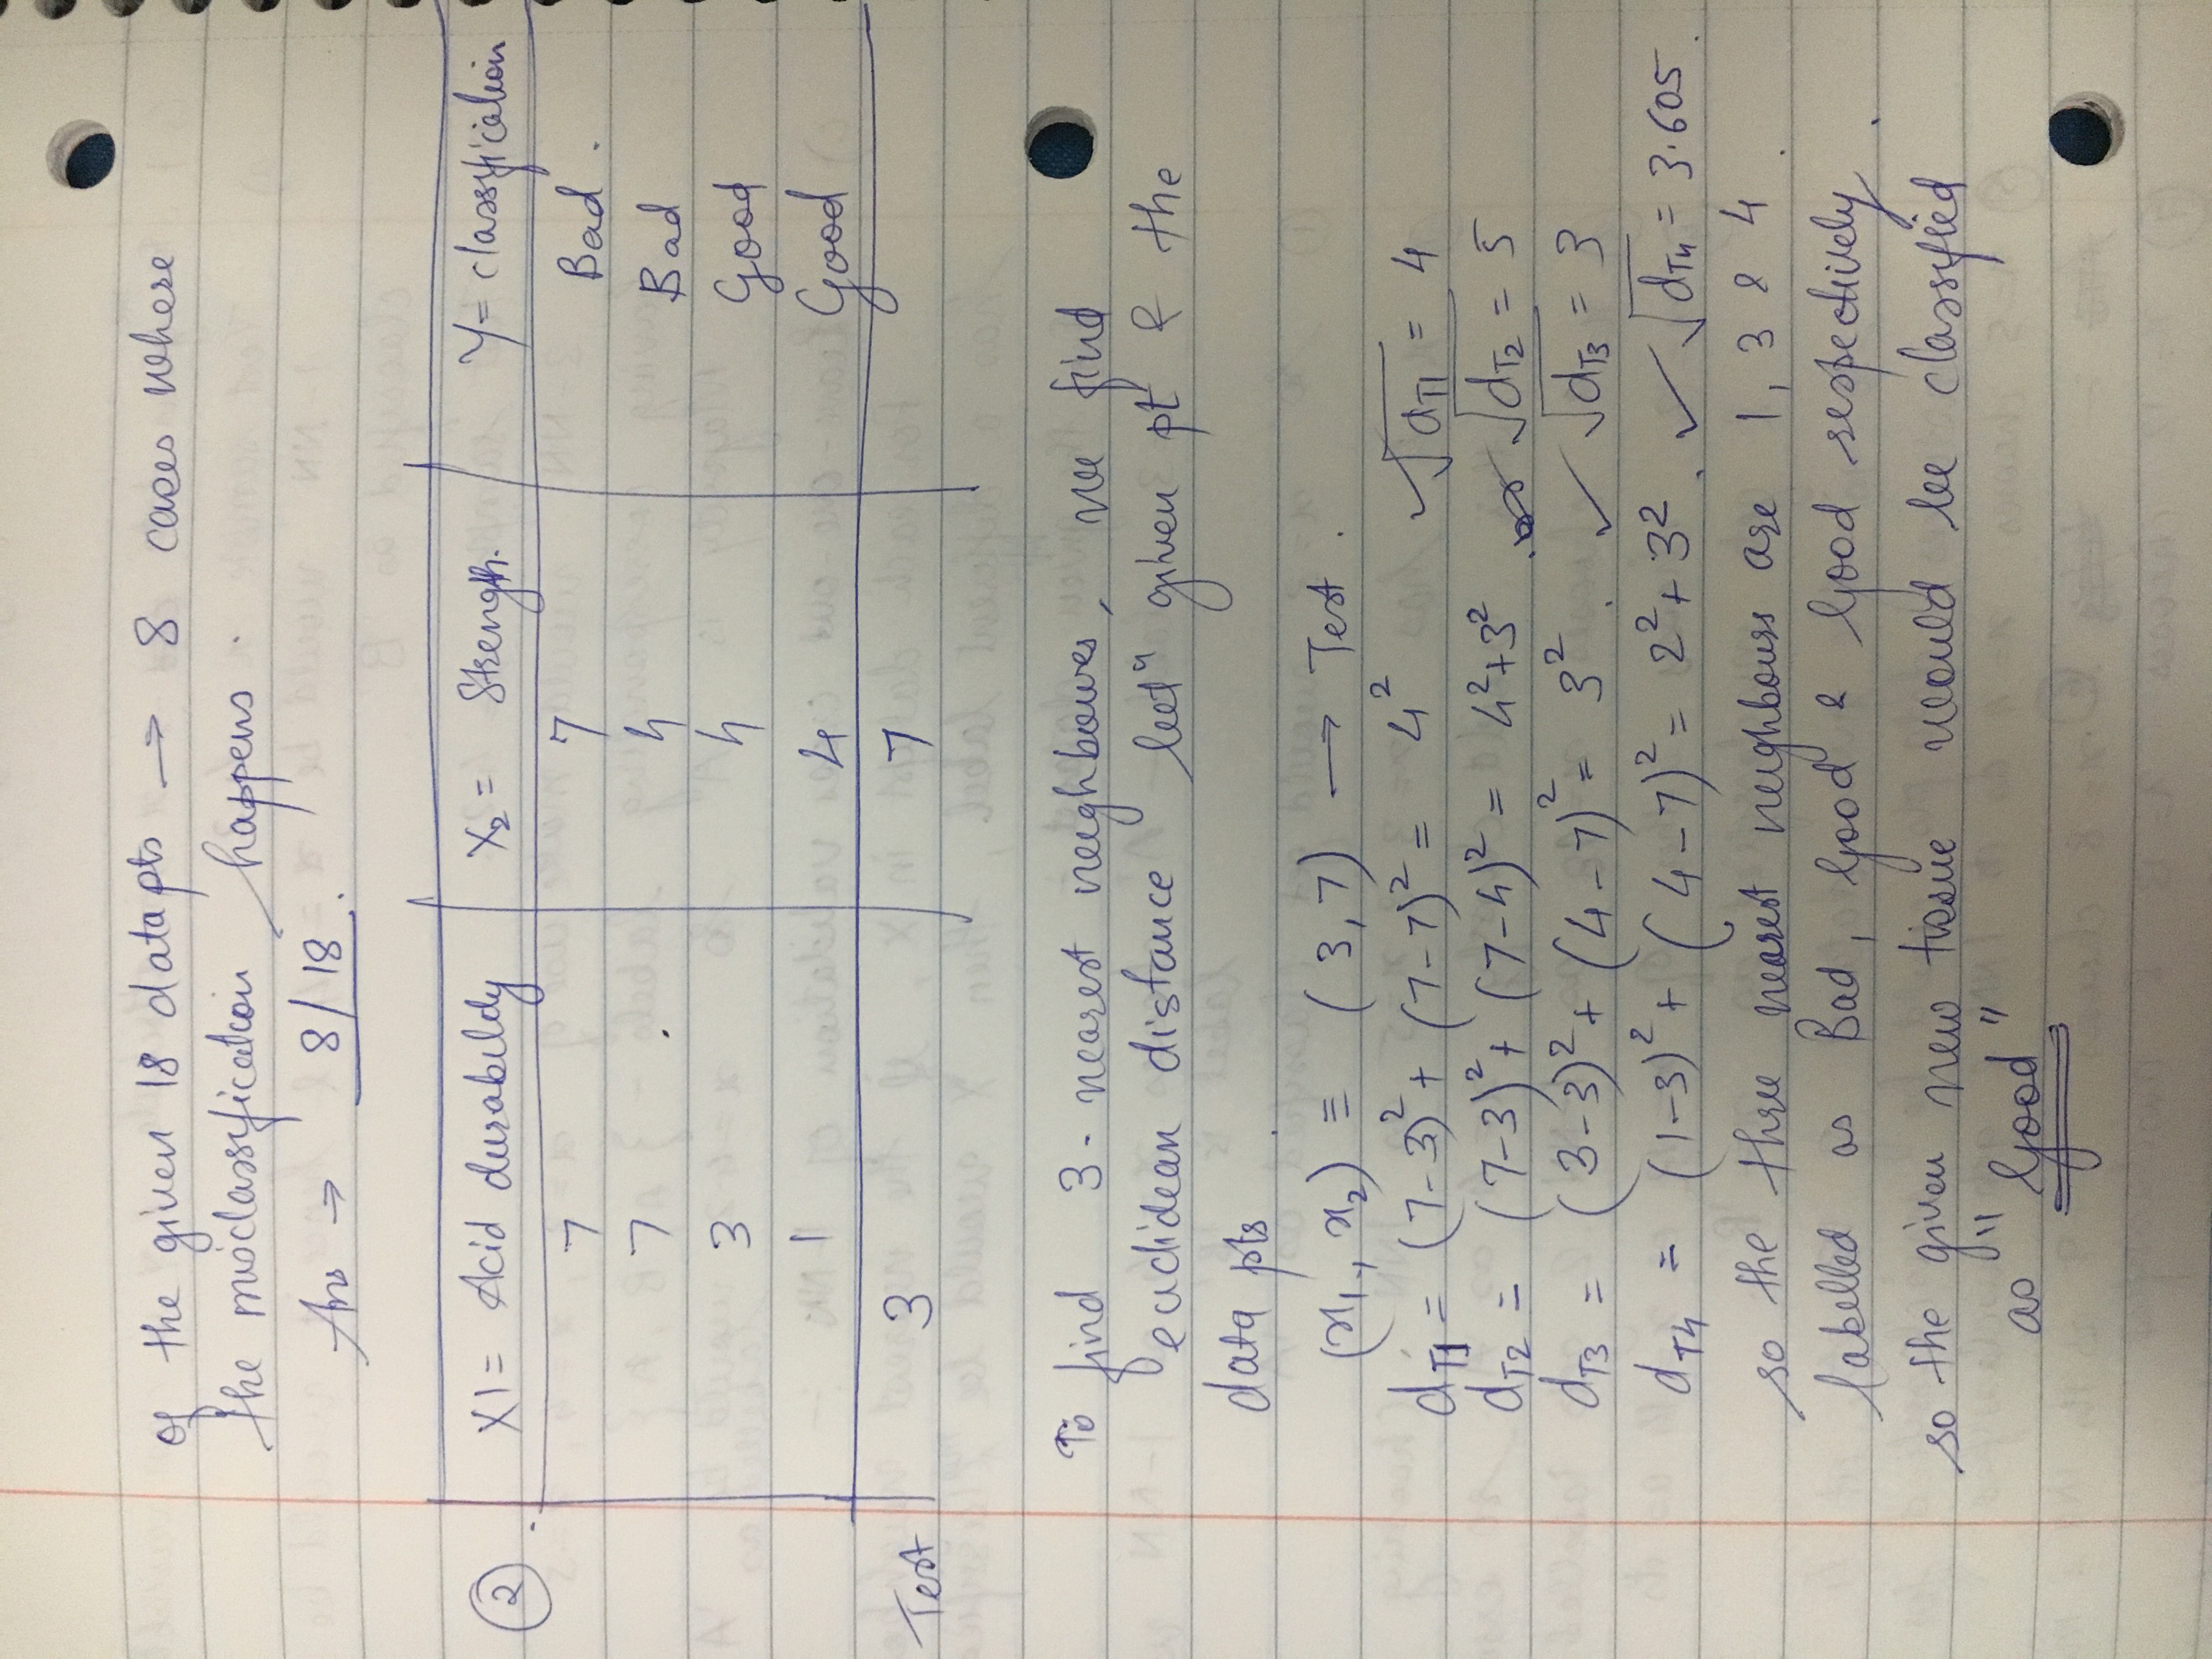 of the given 18 data pts → 8 cases where
the misclassification happens.
Ans → 8/18.
② X1 = Acid durability X₂ = Strength. Y = classification
7 7 Bad.
7 4 Bad
3 4 Good
1 4 Good
Test 3 7
To find 3-nearest neighbours, we find
euclidean distance betⁿ given pt & the
data pts.
(x₁, x₂) ≡ (3, 7) → Test.
dT1 = (7-3)² + (7-7)² = 4² ✓ √dT1 = 4
dT2 = (7-3)² + (7-4)² = 4²+3² √dT2 = 5
dT3 = (3-3)² + (4-7)² = 3². ✓ √dT3 = 3
dT4 = (1-3)² + (4-7)² = 2² + 3². ✓ √dT4 = 3.605.
so the three nearest neighbours are 1, 3 & 4.
labelled as Bad, Good & Good respectively.
so the given new tissue would be classified
as "Good"